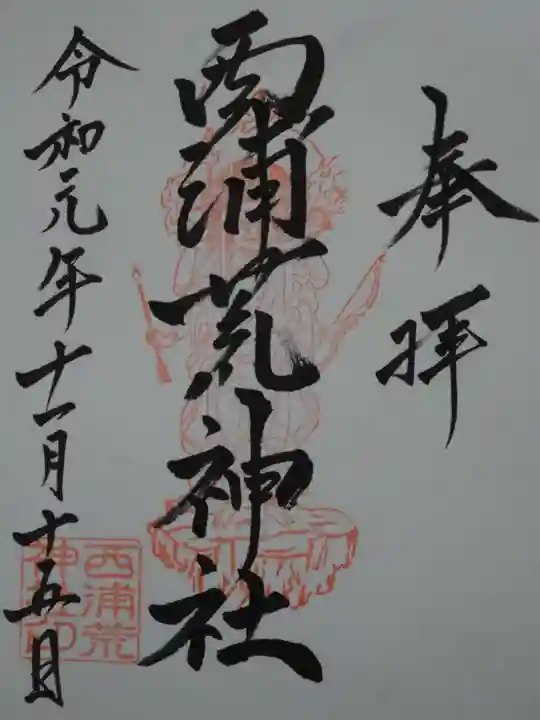 奉拝
西浦荒神社
令和元年十一月十五日
西浦荒
神社印